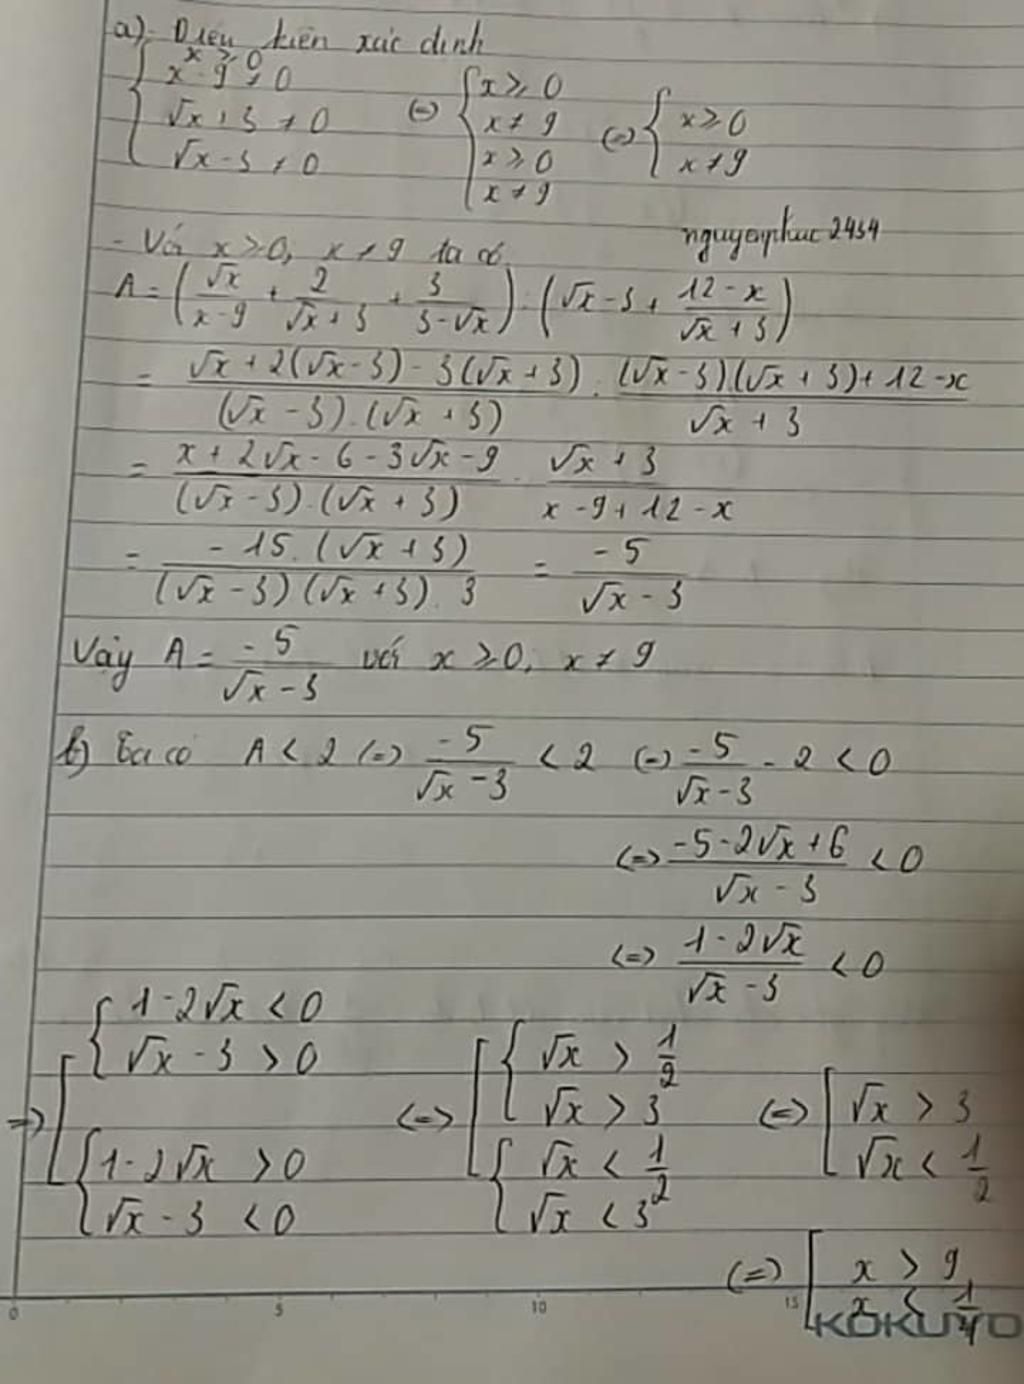 a) Điều kiện xác định
{ x ≥ 0
x - 9 ≠ 0
√x + 3 ≠ 0
√x - 3 ≠ 0
(=) { x ≥ 0
x ≠ 9
x ≥ 0
x ≠ 9
(=) { x ≥ 0
x ≠ 9
nguyenphuc2434
- Với x ≥ 0, x ≠ 9 ta có
A = (√x/(x - 9) + 2/(√x + 3) + 3/(3 - √x)) : (√x - 3 + (12 - x)/(√x + 3))
= (√x + 2(√x - 3) - 3(√x + 3))/((√x - 3).(√x + 3)) : ((√x - 3)(√x + 3) + 12 - x)/(√x + 3)
= (x + 2√x - 6 - 3√x - 9)/((√x - 3).(√x + 3)) . (√x + 3)/(x - 9 + 12 - x)
= (-15.(√x + 3))/((√x - 3)(√x + 3).3) = -5/(√x - 3)
Vậy A = -5/(√x - 3) với x ≥ 0, x ≠ 9
b) Ta có A < 2 (=) -5/(√x - 3) < 2 (=) -5/(√x - 3) - 2 < 0
(=) (-5 - 2√x + 6)/(√x - 3) < 0
(=) (1 - 2√x)/(√x - 3) < 0
=) [ { 1 - 2√x < 0
√x - 3 > 0
{ 1 - 2√x > 0
√x - 3 < 0
(=) [ { √x > 1/2
√x > 3
{ √x < 1/2
√x < 3
(=) [ √x > 3
√x < 1/2
(=) [ x > 9
x < 1/4
0 5 10 15
KOKUYO